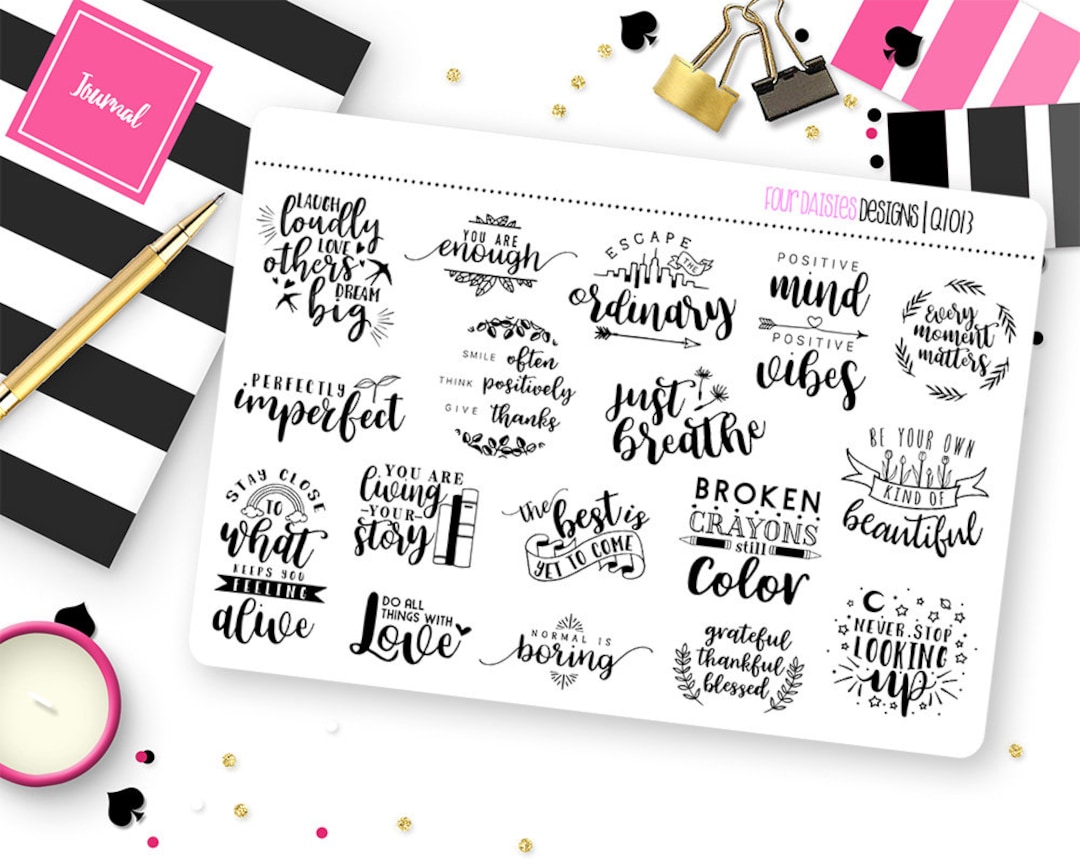 Journal
FOUR DAISIES DESIGNS | Q1013
LAUGH
loudly
LOVE
others
DREAM
big
YOU ARE
enough
ESCAPE
THE
ordinary
POSITIVE
mind
POSITIVE
vibes
Every
moment
matters
PERFECTLY
imperfect
SMILE often
THINK positively
GIVE thanks
just
breathe
BE YOUR OWN
KIND OF
beautiful
STAY CLOSE
TO
what
KEEPS YOU
FEELING
alive
YOU ARE
living
YOUR
story
the best is
YET TO COME
BROKEN
CRAYONS
still
Color
DO ALL
THINGS WITH
Love
NORMAL IS
boring
grateful
thankful
blessed
NEVER STOP
LOOKING
up